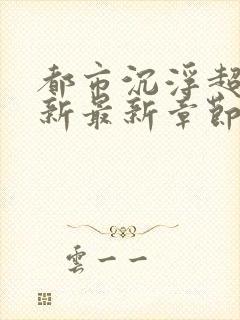 都市沉浮超
新最新章節
雲一一